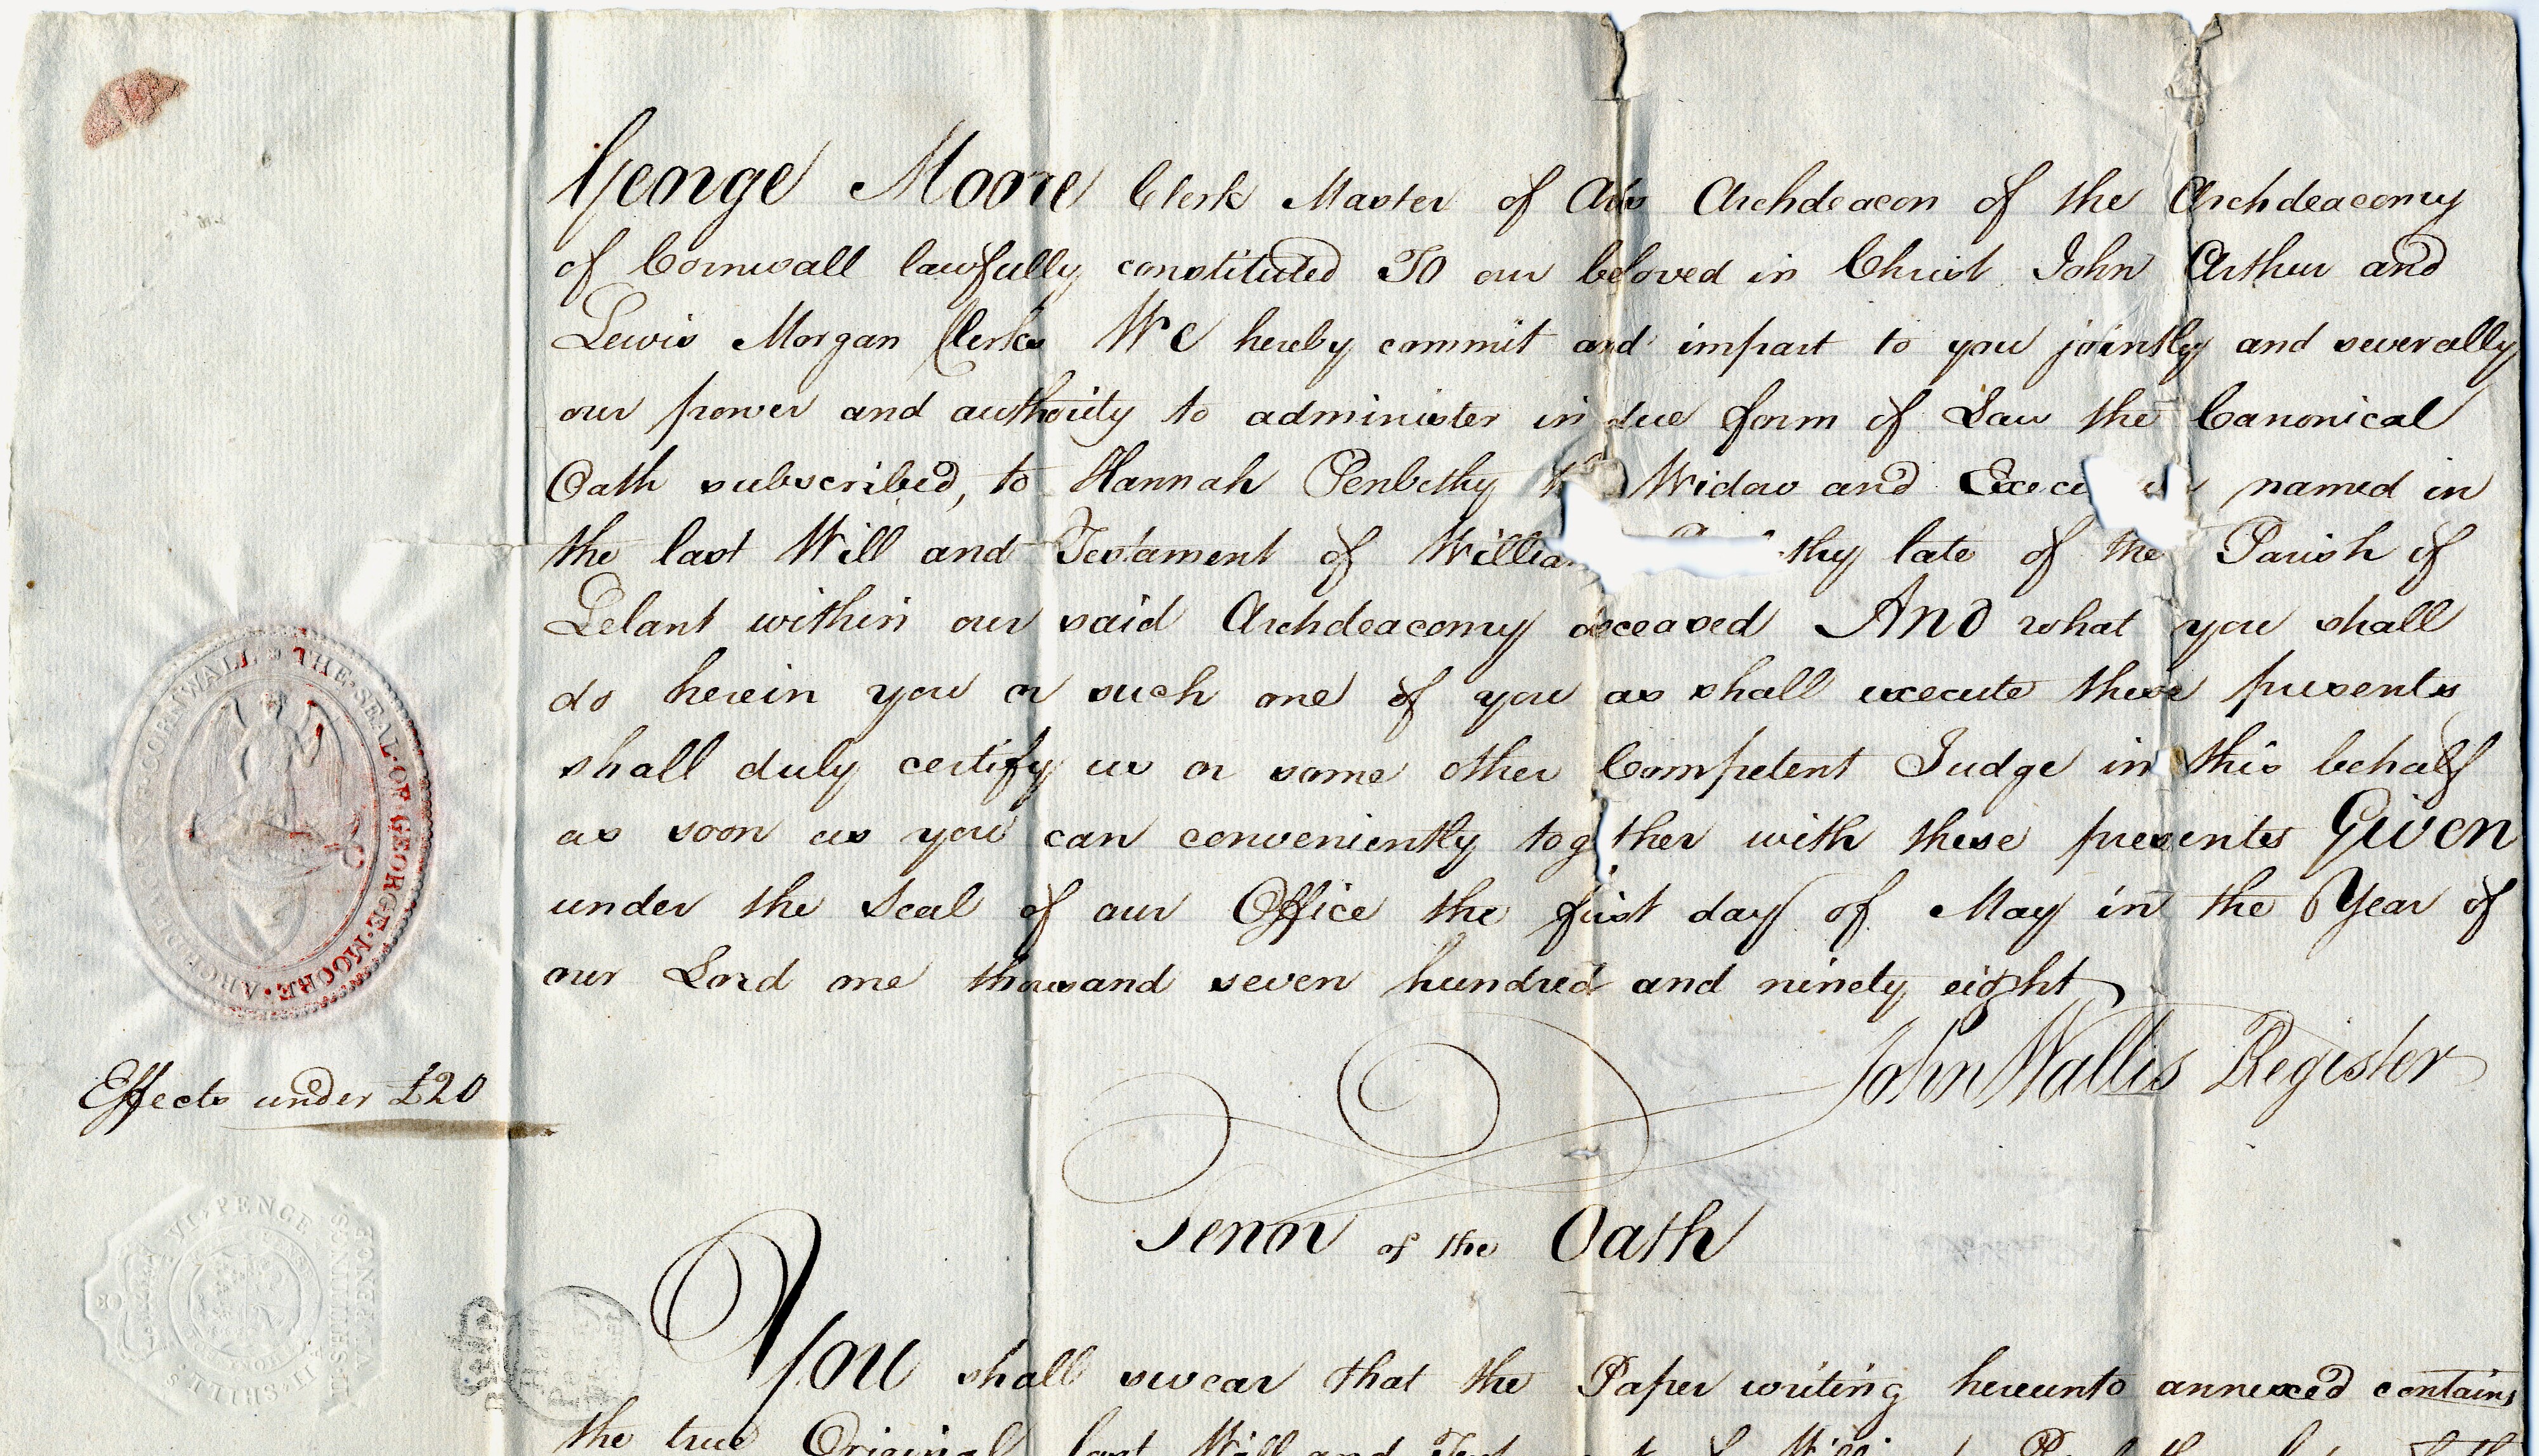 George Moore Clerk Master of Arts Archdeacon of the Archdeaconry
of Cornwall lawfully constituted To our beloved in Christ John Arthur and
Lewis Morgan Clerks We hereby commit and impart to you jointly and severally
our power and authority to administer in due form of Law the Canonical
Oath subscribed, to Hannah Penbethy Widow and named in
the last Will and Testament of thy late of the Parish of
Lelant within our said Archdeaconry deceased And what you shall
do herein you or such one of you as shall execute these presents
shall duly certify us or some other Competent Judge in this behalf
as soon as you can conveniently together with these presents Given
under the Seal of our Office the first day of May in the Year of
our Lord one thousand seven hundred and ninety eight
John Wallis Register
THE·SEAL·OF·GEORGE·MOORE·ARCHD CORNWALL
Effects under £20
VI·PENCE
II·SHILL
SHILLINGS
PENCE
Tenor of the Oath
You shall swear that the Paper writing hereunto annexed contains
the true Original last Will and